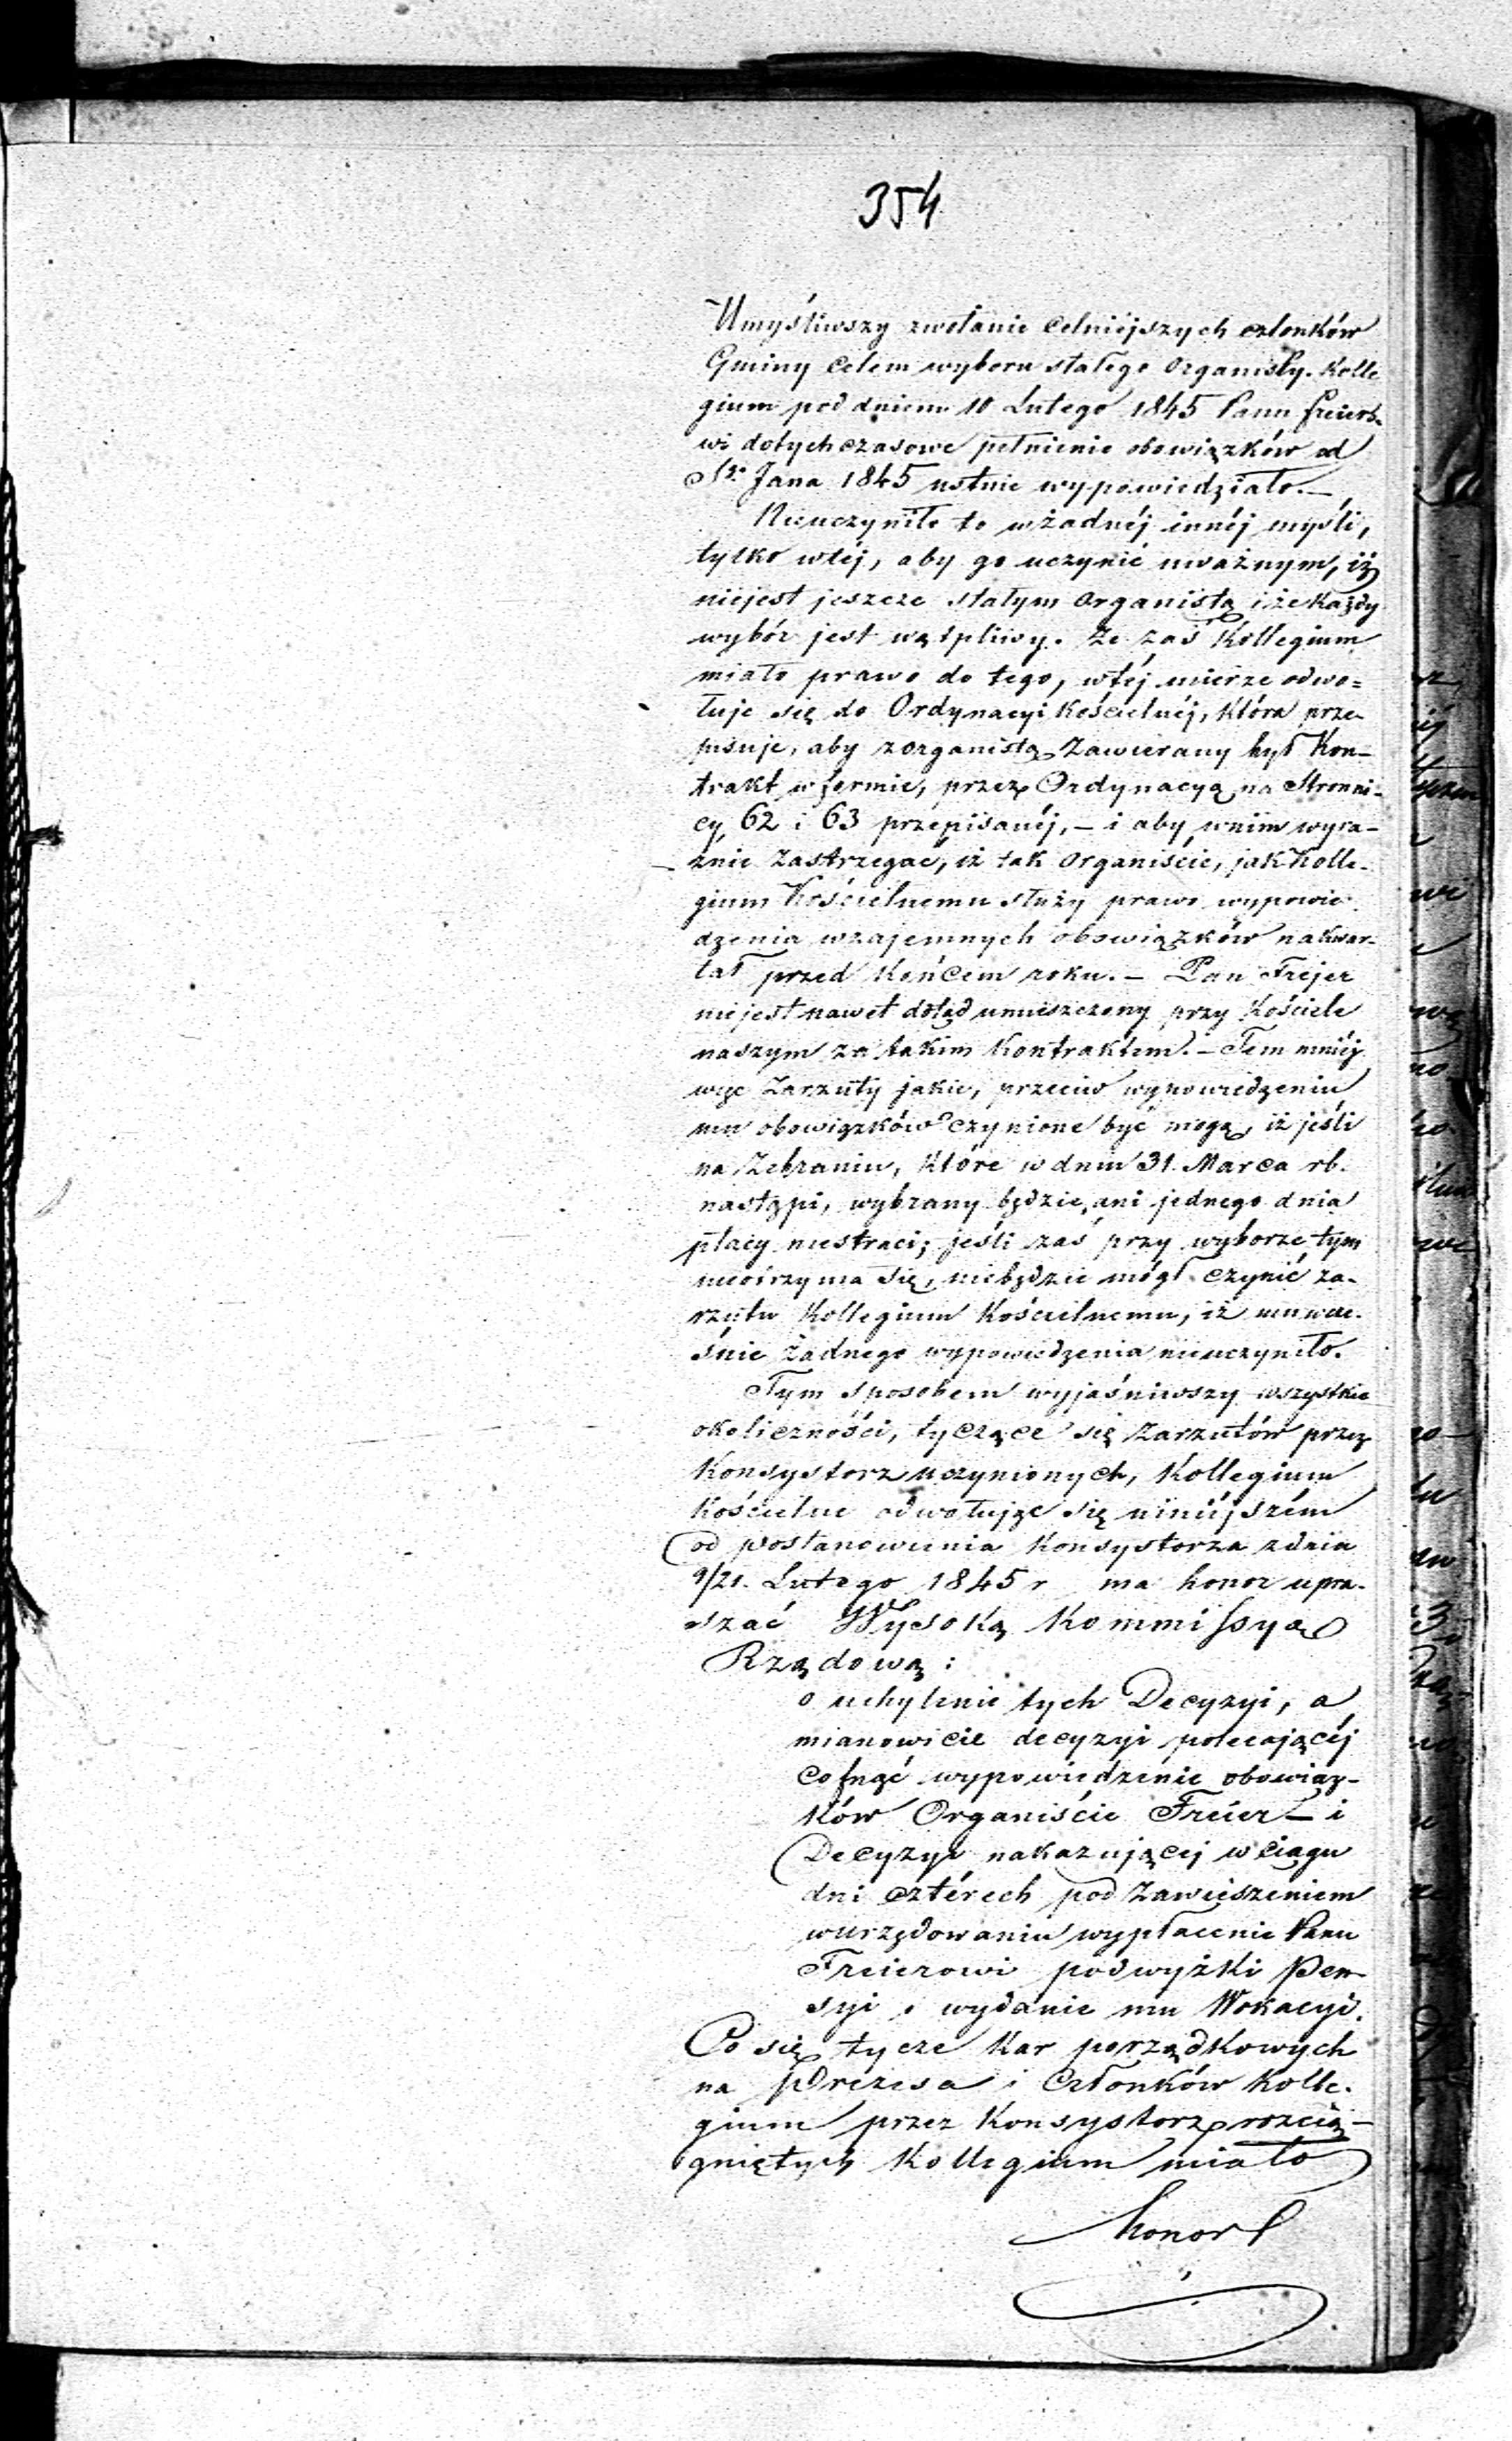 354
Umyśliwszy zwołanie celniejszych członków
Gminy celem wyboru stałego Organisty. Kolle
gium pod dniem 10 Lutego 1845 Panu Freiero-
wi dotychczasowe pełnienie obowiązków od
Sgo Jana 1845 ustnie wypowiedziało. —
Nieuczyniło to w żadnéj innéj myśli,
tylko wtéj, aby go uczynić uważnym, iż
niejest jeszcze stałym Organistą i że każdy
wybór jest wątpliwy. Że zaś Kollegium
miało prawo do tego, wtéj mierze odwo=
łuje się do Ordynacyi Kościelnéj, która prze
pisuje, aby z organistą zawierany był Kon-
trakt w formie, przez Ordynacyą na Stronni-
cy 62 i 63 przepisanéj, — i aby wnim wyra-
źnie zastrzegać, iż tak Organiście, jak Kolle-
gium Kościelnemu służy prawo wypowie
dzenia wzajemnych obowiązków na kwar-
tał przed końcem roku. — Pan Frejer
niejest nawet dotąd umieszczony przy Kościele
naszym za takim Kontraktem. — Tem mniéj
więc zarzuty jakie, przeciw wypowiedzeniu
mu obowiązków czynione być mogą, iż jeśli
na Zebraniu, które w dniu 31. Marca rb.
nastąpi, wybrany będzie, ani jednego dnia
płacy niestraci; jeśli zaś przy wyborze tym
nieotrzyma się, niebędzie mógł czynić za-
rzutu Kollegium Kościelnemu, iż mu wcze-
śnie żadnego wypowiedzenia nieuczyniło.
Tym sposobem wyjaśniwszy wszystkie
okoliczności, tyczące się zarzutów przez
Konsystorz uczynionych, Kollegium
Kościelne odwołując się niniéjszém
od postanowienia Konsystorza z dnia
9/21. Lutego 1845 r ma honor upra-
szać Wysoką Kommissyą
Rządową:
o uchylenie tych Decyzyi, a
mianowicie decyzyi polecającéj
cofnąć wypowiedzenie obowiąz-
ków Organiście Freier — i
Decyzyi nakazującéj w ciągu
dni cztérech pod zawieszeniem
w urzędowaniu wypłacenie Panu
Freierowi podwyżki Pen-
syi i wydanie mu Wokacyi.
Co się tycze kar porządkowych
na Prezesa i Członków Kolle-
gium przez Konsystorz rozcią-
gniętych Kollegium miało
honor